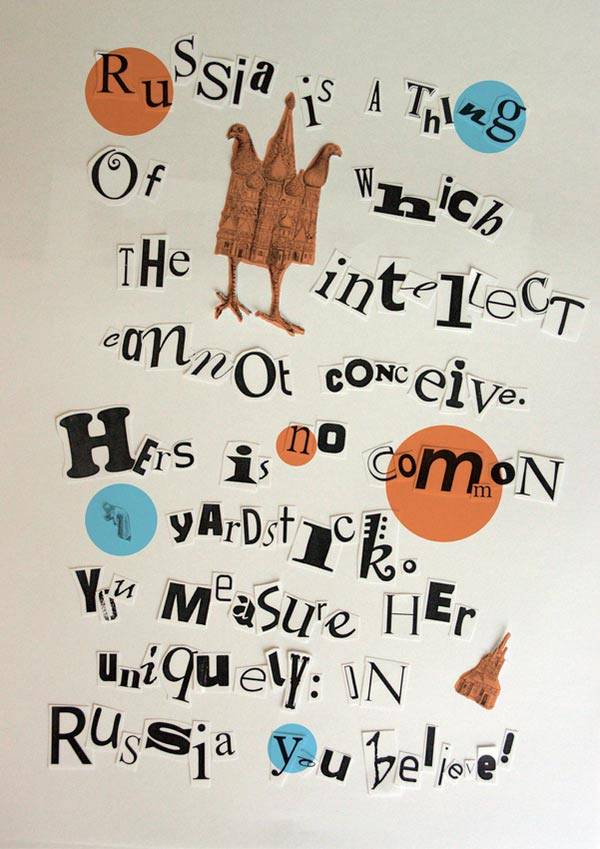 Russia is A ThIng
Of which
THe intellecT
cannot concEive.
HErs is no commoN
yArDstick.
You MeaSure HEr
uniquely: IN
Russia you believe!